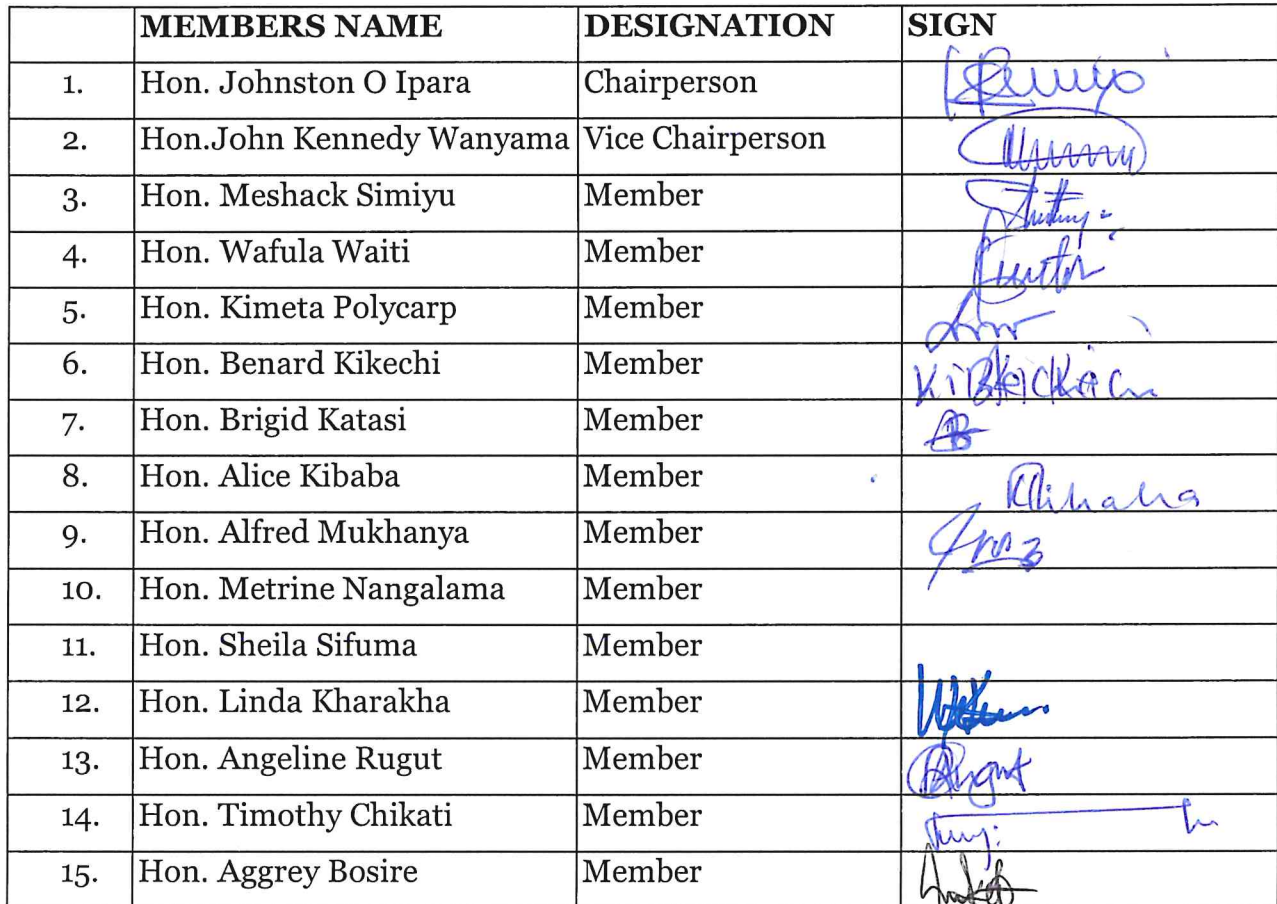 MEMBERS NAME DESIGNATION SIGN
1. Hon. Johnston O Ipara Chairperson
2. Hon.John Kennedy Wanyama Vice Chairperson
3. Hon. Meshack Simiyu Member
4. Hon. Wafula Waiti Member
5. Hon. Kimeta Polycarp Member
6. Hon. Benard Kikechi Member
7. Hon. Brigid Katasi Member
8. Hon. Alice Kibaba Member
9. Hon. Alfred Mukhanya Member
10. Hon. Metrine Nangalama Member
11. Hon. Sheila Sifuma Member
12. Hon. Linda Kharakha Member
13. Hon. Angeline Rugut Member
14. Hon. Timothy Chikati Member
15. Hon. Aggrey Bosire Member